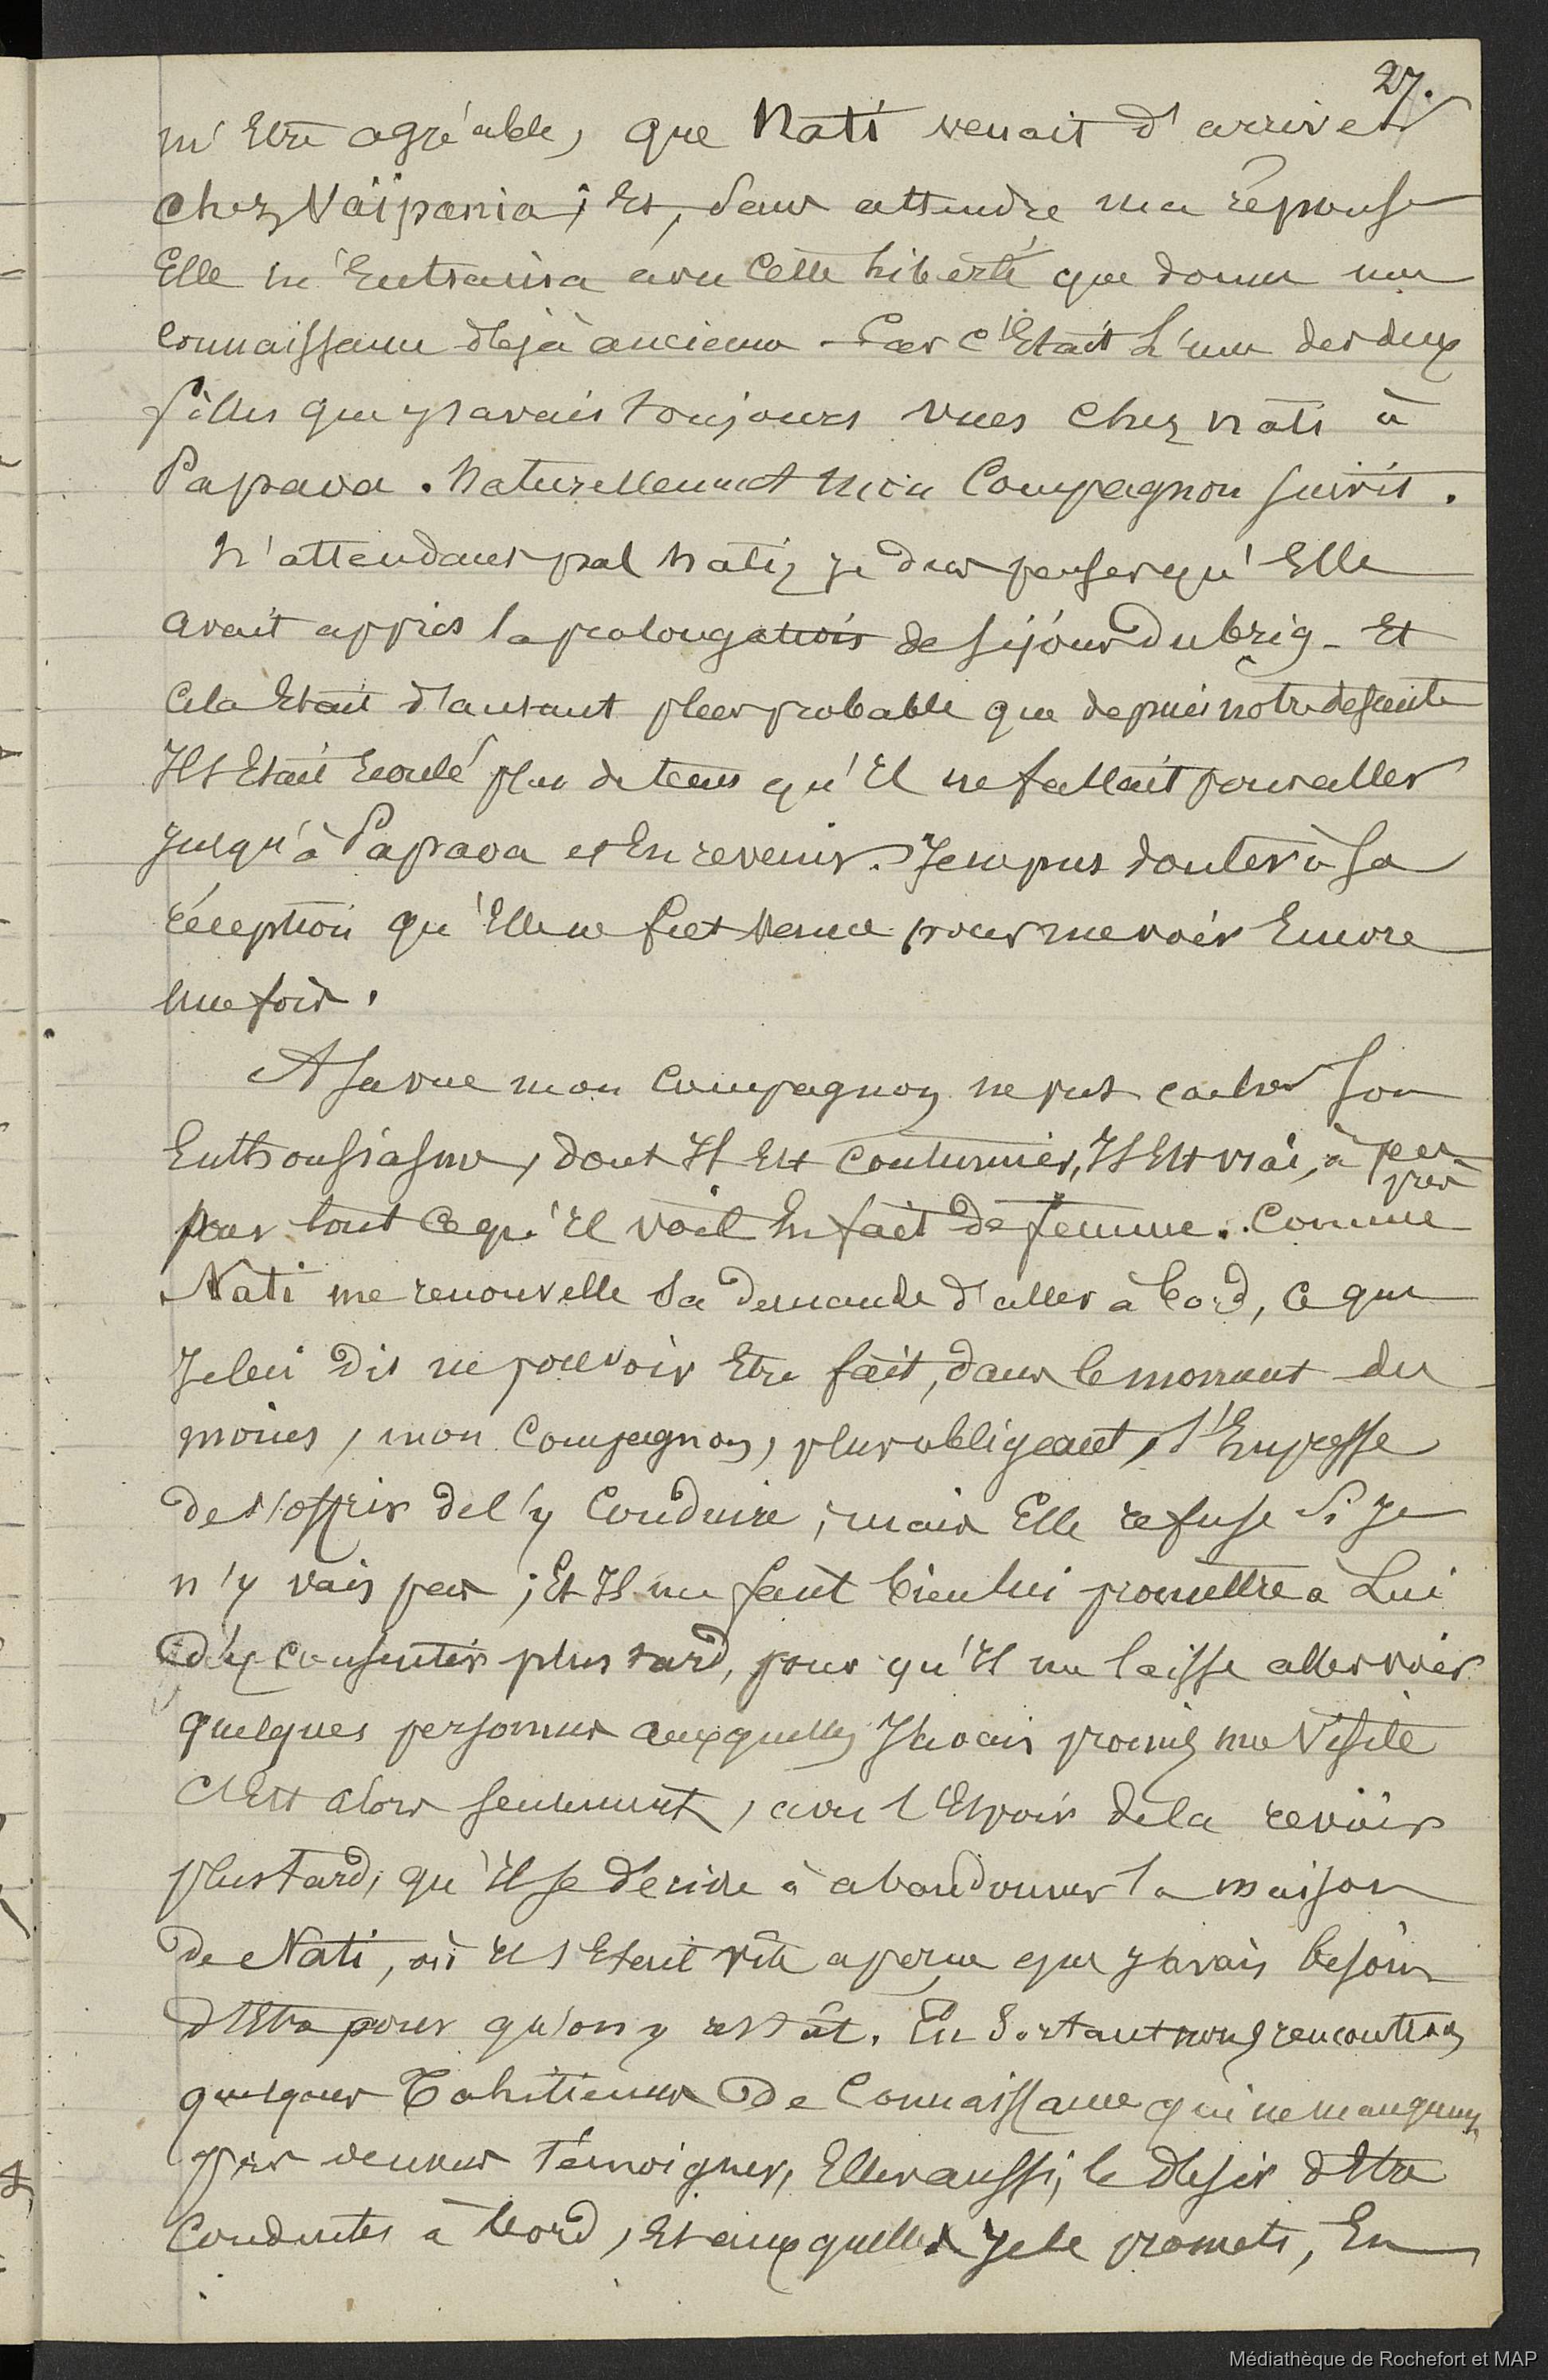 27.
m'être agréable, que Nati venait d'arriver
chez Vaïpania ; et, sans attendre ma réponse
elle m'entraina avec cette liberté que donne une
connaissance déjà ancienne - Car c'était l'une des deux
filles que j'avais toujours vues chez Nati à
Papava. Naturellement mon compagnon suivit.
N'attendant pas Nati, je dus penser qu'elle
avait appris la prolongation de séjour du brig - et
cela était d'autant plus probable que depuis notre descente
il s'était écoulé plus de tems qu'il ne fallait pour aller
jusqu'à Papava et en revenir. Je ne pus douter à sa
réception qu'elle ne fut venue pour me voir encore
une fois.
A sa vue mon compagnon ne put cacher son
enthousiasme, dont il est coutumier, il est vrai, à peu
près
pour tout ce qu'il voit en fait de femme. Comme
Nati me renouvelle sa demande d'aller à bord, ce que
je lui dis ne pouvoir être fait, dans le moment du
moins, mon compagnon, plus obligeant, s'empresse
de s'offrir de l'y conduire ; mais elle refuse si je
n'y vais pas ; et il me faut bien lui promettre à lui
d'y consentir plus tard, pour qu'il me laisse aller voir
quelques personnes auxquelles j'avais promis ma visite
C'est alors seulement, avec l'espoir de la revoir
plus tard, qu'il se décide à abandonner la maison
de Nati, où il s'était vite aperçu que j'avais besoin
d'être pour qu'on y restât. En sortant nous rencontrons
quelques Tahitiennes de connaissance qui ne manquent
pas de venir témoigner, elles aussi, le désir d'être
conduites à bord, et auxquelles je le promets, en
Médiathèque de Rochefort et MAP